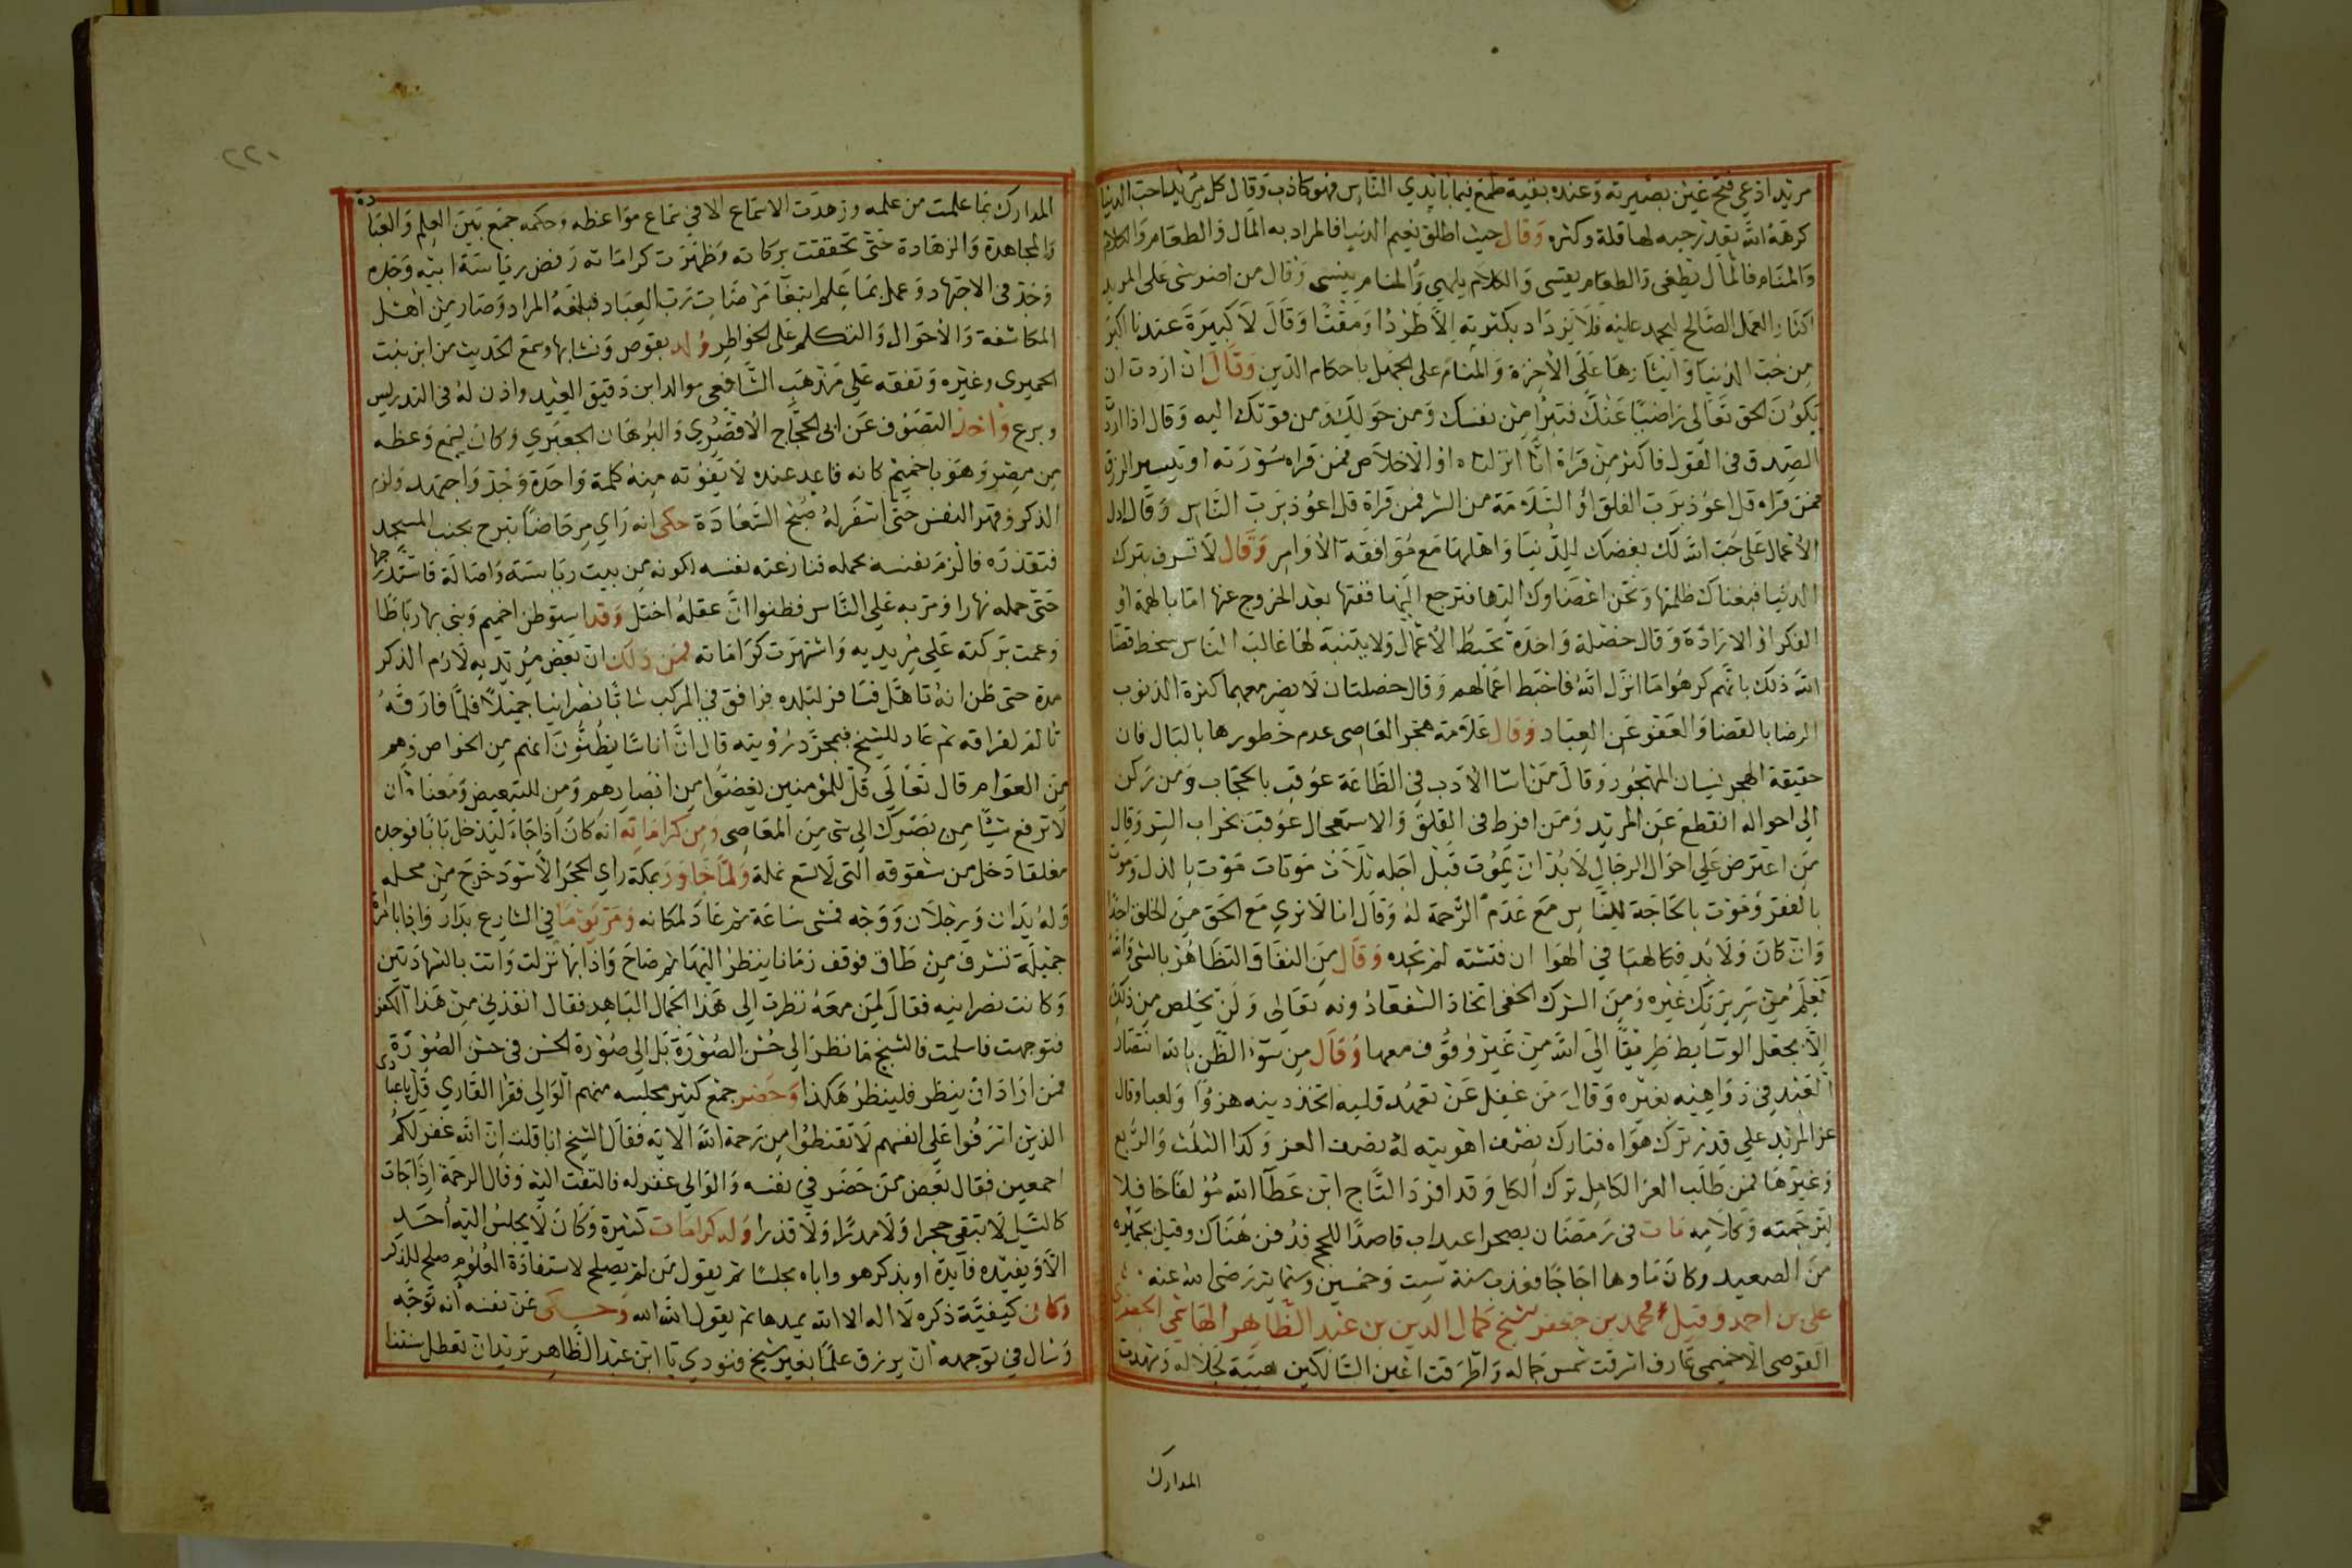 مريد ادعى فتح عين بصيرته وعنده بقية طمع فيما بايدي الناس فهو كاذب وقال كل مريد احب الدنيا
كرهه الله بقدر حبه لها قلة وكثرة وقال حيث اطلق نعيم الدنيا فالمراد به المال والطعام والكلام
والمنام فالمال يطغى والطعام يقسى والكلام يلهي والمنام ينسي وقال من اضر شي على المريد
اكثار العمل الصالح ليحمد عليه فلا يزداد بكثرته الا طردا ومقتا وقال لا كبيرة عندنا اكبر
من حب الدنيا وايثارها على الاخرة والمنام على الجهل باحكام الدين وقال ان اردت ان
يكون الحق تعالى راضيا عنك فتبرا من نفسك ومن حولك ومن قوتك اليه وقال اذا اردت
الصدق في القول فاكثر من قراة انا انزلناه او الاخلاص فمن قراه سورته او تيسير الرزق
فمن قراه قل اعوذ برب الفلق او السلامة من الشر فمن قراة قل اعوذ برب الناس وقال ادل
الاعمال على حب الله لك بغضك للدنيا واهلها مع موافقة الاوامر وقال لا تسرف بترك
الدنيا فيغشاك ظلمتها وتحن اعضاوك اليها فترجع اليها فقتها بعد الخروج عنها اما بالهمة او
الفكر او الارادة وقال خصلة واحدة تحبط الاعمال ولا يتنبه لها غالب الناس سخط قضا
الله ذلك بانهم كرهوا ما انزل الله فاحبط اعمالهم وقال خصلتان لا يضر معهما كثرة الذنوب
الرضا بالقضا والعفو عن العباد وقال علامة هجر العاصى عدم خطورها بالبال فان
حقيقة الهجر نسيان المهجور وقال من اسا الادب في الطاعة عوقب بالحجاب ومن ركن
الى احواله انقطع عن المريد ومن افرط في القلق والاستعجال عوقب بخراب السر وقال
من اعترض علي احوال الرجال لا بد ان يموت قبل اجله ثلاث موتات موت بالذل وموت
بالفقر وموت بالحاجة للناس مع عدم الرحمة له وقال انا لا نري مع الحق من الخلق احدا
وان كان ولا بد فكالهبا في الهوا ان فتشته لم تجده وقال من النفاق التظاهر بالشي والله
يعلم من سريرتك غيره ومن الشرك الخفي اتخاذ الشفعا دونه تعالى ولن يخلص من ذلك
الا بجعل الوسايط طريقا الى الله من غير وقوف معها وقال من سوء الظن بالله انتصار
العبد في دواهيه بغيره وقال من غفل عن تعهد قلبه اتخذ دينه هزوا ولعبا وقال
عز المريد علي قدر ترك هواه فتارك نصف اهويته له نصف العز وكذا الثلث والربع
وغيرها فمن طلب العز الكامل ترك الكل وقد افرد التاج ابن عطا الله مولفا حافلا
لترجمته وكلامه مات في رمضان بصحرا عيداب قاصدا للحج فدفن هناك وقيل بحميثره
من الصعيد وكان ماوها اجاجا فعذب سنة ست وخمسين وستماية رضى الله عنه
على بن احمد وقيل محمد بن جعفر الشيخ كمال الدين بن عبد الظاهر الهاشمي الجعفري
القوصى الاخميمى عارف اشرقت شمس جماله واطرقت اعين السالكين هيبة لجلاله وشهدت
المدارك
٢٢١
المدارك بما علمت من علمه وزهدت الاسماع الا في سماع مواعظه وحكمه جمع بين العلم والعبادة
والمجاهدة والزهادة حتى تحققت بركاته وظهرت كراماته رفض رياسة ابيه وجده
وجد في الاجتهاد وعمل بما علم ابتغا مرضات رب العباد فبلغه المراد وصار من اهل
المكاشفة والاحوال والتكلم على الخواطر ولد بقوص ونشا بها وسمع الحديث من ابن بنت
الحميرى وغيره وتفقه علي مذهب الشافعى موالد ابن دقيق العيد واذن له في التدريس
وبرع واخذ التصوف عن ابى الحجاج الاقصري والبرهان الجعبري وكان يسمع وعظه
من مصر وهو باخميم كانه قاعد عنده لا يفوته منه كلمة واحدة وجد واجتهد ولزم
الذكر وقهر النفس حتى اسفر له صبح السعادة حكى انه راي مرحاضا تبرح بجنب المسجد
فتقذره فالزم نفسه بحمله فنازعته نفسه لكونه من بيت رياسة واصالة فاستدرجها
حتى حمله نهارا ومر به علي الناس فظنوا ان عقله اختل وقد استوطن اخميم وبنى بها رباطا
وعمت بركته علي مريديه واشتهرت كراماته فمن ذلك ان بعض مريديه لازم الذكر
مدة حتى ظن انه تاهل فسافر لبلده فرافق في المركب شابا نصرانيا جميلا فلما فارقه
تالم لفراقه ثم عاد للشيخ فبمجرد رؤيته قال ان اناسا يظنون انهم من الخواص وهم
من العوام قال تعالى قل للمؤمنين يغضوا من ابصارهم ومن للتبعيض ومعناه ان
لا ترفع شيئا من بصرك الى شى من المعاصى ومن كراماته انه كان اذا جاء ليدخل بابا فوجده
مغلقا دخل من شقوقه التي لا تسع نملة ولما جاور بمكة راي الحجر الاسود خرج من محله
وله يدان ورجلان ووجه فمشى ساعة ثم عاد لمكانه ومر يوما في الشارع بدار واذا بامرأة
جميلة تشرف من طاق فوقف زمانا ينظر اليها ثم صاح واذا بها نزلت واتت بالشهادتين
وكانت نصرانيه فقال لمن معه نظرت الي هذا الجمال الباهر فقال انقذني من هذا الكفر
فتوجهت فاسلمت فالشيخ ما نظر الى حسن الصورة بل الى صورة الحسن في حسن الصورة
فمن اراد ان ينظر فلينظر هكذا وحضر جمع كثير مجلسه منهم الوالى فقرا القاري قل ياعبادى
الذين اسرفوا على انفسهم لا تقنطوا من رحمة الله الاية فقال الشيخ انا قلت ان الله غفر لكم
اجمعين فقال بعض من حضر في نفسه والوالي غفر له فالتفت اليه وقال الرحمة اذا جات
كالسيل لا تبقى حجرا ولا مدرا ولا قذرا وله كرامات كثيرة وكان لا يجلس اليه احد
الا ويفيده فايدة او يذكر هو واياه مجلسا ثم يقول من لم يصلح لاستفادة العلوم صلح للذكر
وكان كيفية ذكره لا اله الا الله يمدها ثم يقول الله الله وحكى عن نفسه انه توجه
وسال في توجهه ان يرزق علما بغير شيخ فنودي يا ابن عبد الظاهر تريد ان تعطل سنتنا